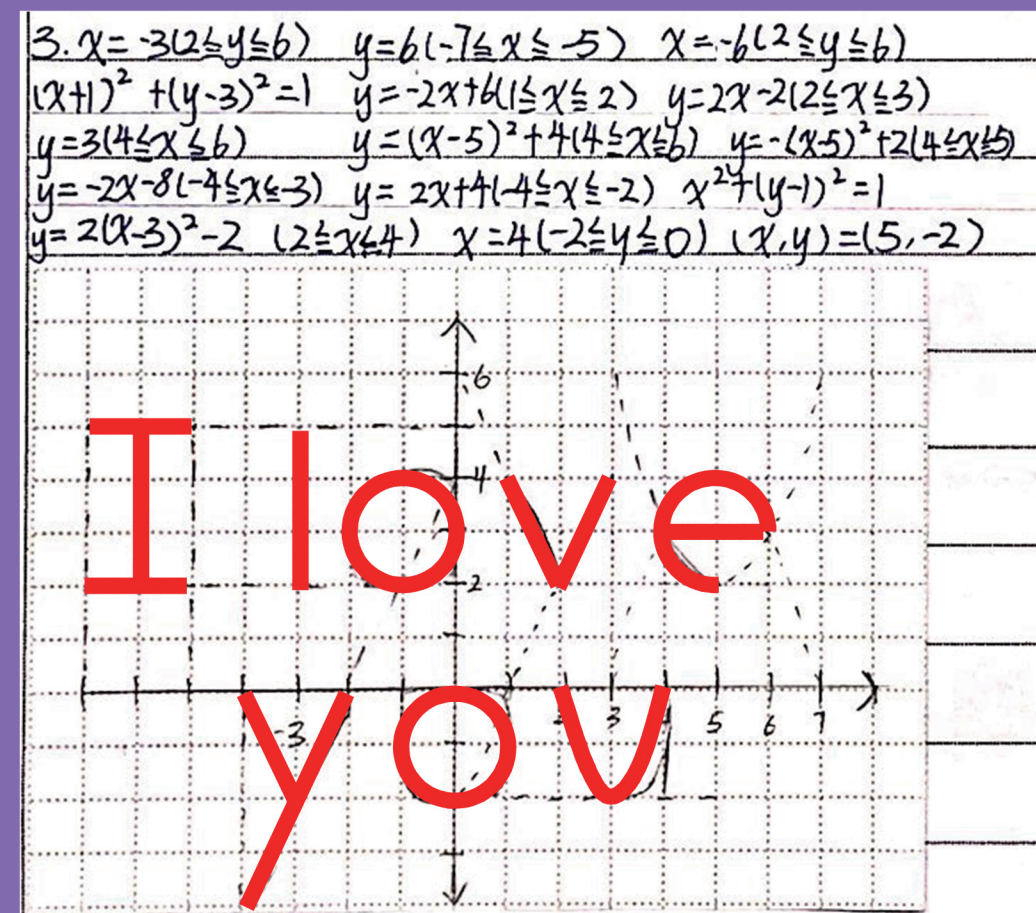 3. x=-3(2≦y≦6) y=6(-7≦x≦-5) x=-6(2≦y≦6)
(x+1)² +(y-3)²=1 y=-2x+6(1≦x≦2) y=2x-2(2≦x≦3)
y=3(4≦x≦6) y=(x-5)²+4(4≦x≦6) y=-(x-5)²+2(4≦x≦5)
y=-2x-8(-4≦x≦-3) y=2x+4(-4≦x≦-2) x²+(y-1)²=1
y=2(x-3)²-2 (2≦x≦4) x=4(-2≦y≦0) (x,y)=(5,-2)
6
I love
4
2
-3 3 5 6 7
you